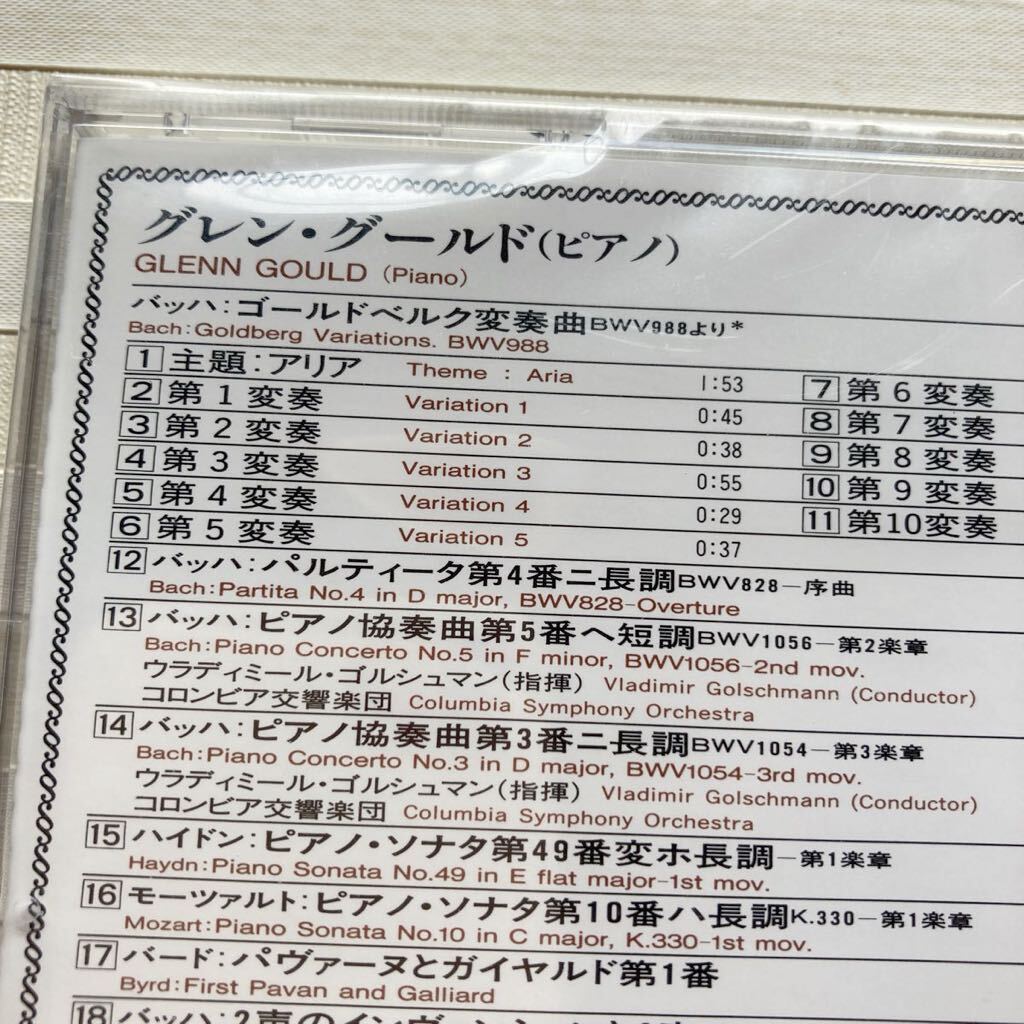 グレン・グールド(ピアノ)
GLENN GOULD (Piano)
バッハ:ゴールドベルク変奏曲BWV988より*
Bach:Goldberg Variations. BWV988
1 主題:アリア Theme : Aria 1:53 7 第6変奏
2 第1変奏 Variation 1 0:45 8 第7変奏
3 第2変奏 Variation 2 0:38 9 第8変奏
4 第3変奏 Variation 3 0:55 10 第9変奏
5 第4変奏 Variation 4 0:29 11 第10変奏
6 第5変奏 Variation 5 0:37
12 バッハ:パルティータ第4番ニ長調BWV828—序曲
Bach:Partita No.4 in D major, BWV828-Overture
13 バッハ:ピアノ協奏曲第5番ヘ短調BWV1056—第2楽章
Bach:Piano Concerto No.5 in F minor, BWV1056-2nd mov.
ウラディミール・ゴルシュマン(指揮) Vladimir Golschmann (Conductor)
コロンビア交響楽団 Columbia Symphony Orchestra
14 バッハ:ピアノ協奏曲第3番ニ長調BWV1054—第3楽章
Bach:Piano Concerto No.3 in D major, BWV1054-3rd mov.
ウラディミール・ゴルシュマン(指揮) Vladimir Golschmann (Conductor)
コロンビア交響楽団 Columbia Symphony Orchestra
15 ハイドン:ピアノ・ソナタ第49番変ホ長調—第1楽章
Haydn:Piano Sonata No.49 in E flat major-1st mov.
16 モーツァルト:ピアノ・ソナタ第10番ハ長調K.330—第1楽章
Mozart:Piano Sonata No.10 in C major, K.330-1st mov.
17 バード:パヴァーヌとガイヤルド第1番
Byrd:First Pavan and Galliard
18 バッハ:2声のインヴェンション